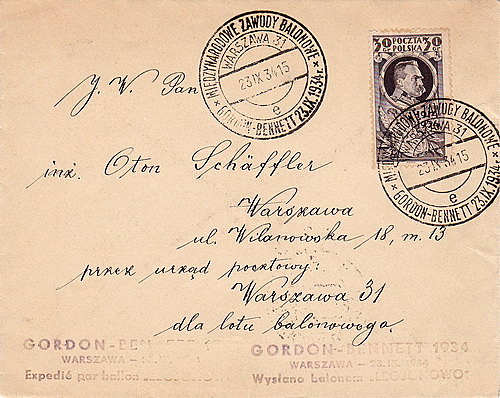 MIĘDZYNARODOWE ZAWODY BALONOWE
WARSZAWA 31
23 IX 34 15
e
GORDON-BENNETT 23.IX.1934 r.
30 POCZTA 30
GR POLSKA GR
MIĘDZYNARODOWE ZAWODY BALONOWE
WARSZAWA 31
23 IX 34 15
e
GORDON-BENNETT 23.IX.1934 r.
J. W. Pan
inż. Oton Schäffler
Warszawa
ul. Wilanowska 18, m. 13
przez urząd pocztowy:
Warszawa 31
dla lotu balonowego.
GORDON-BENNETT 1934
WARSZAWA –
Expedié par ballon „LEGJONOWO”
GORDON-BENNETT 1934
WARSZAWA – 23. IX. 1934
Wysłano balonem „LEGJONOWO”